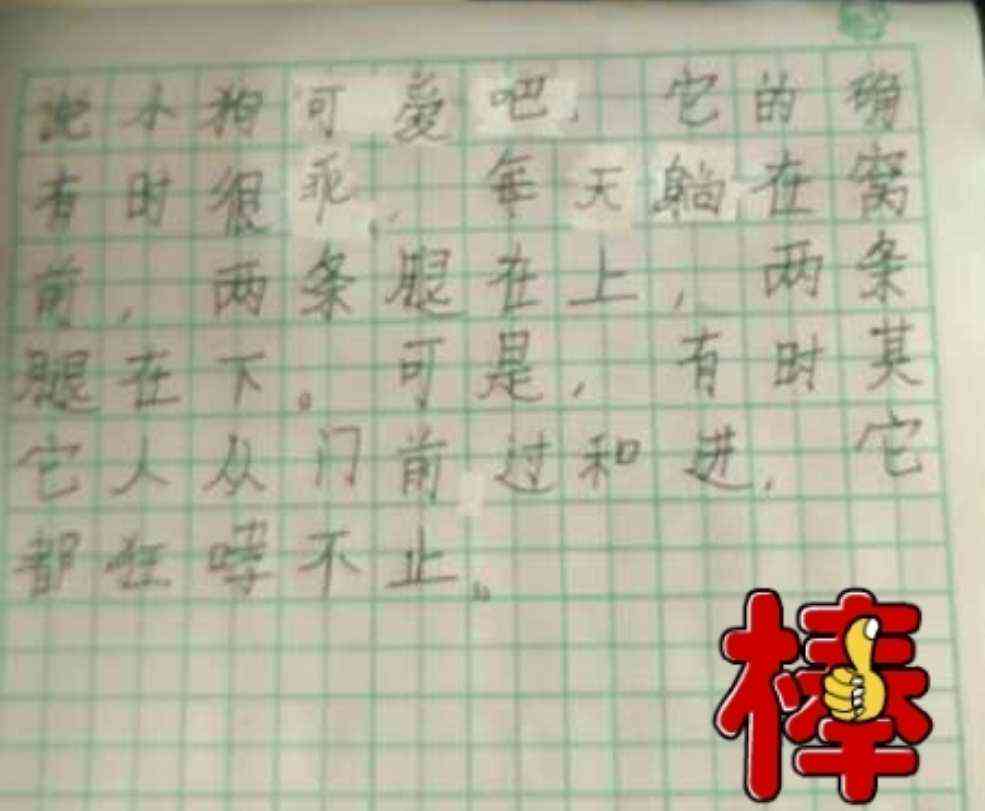 说小狗可爱吧，它的确
有时很乖，每天躺在窝
前，两条腿在上，两条
腿在下。可是，有时其
它人从门前过和进，它
都狂哮不止。
棒